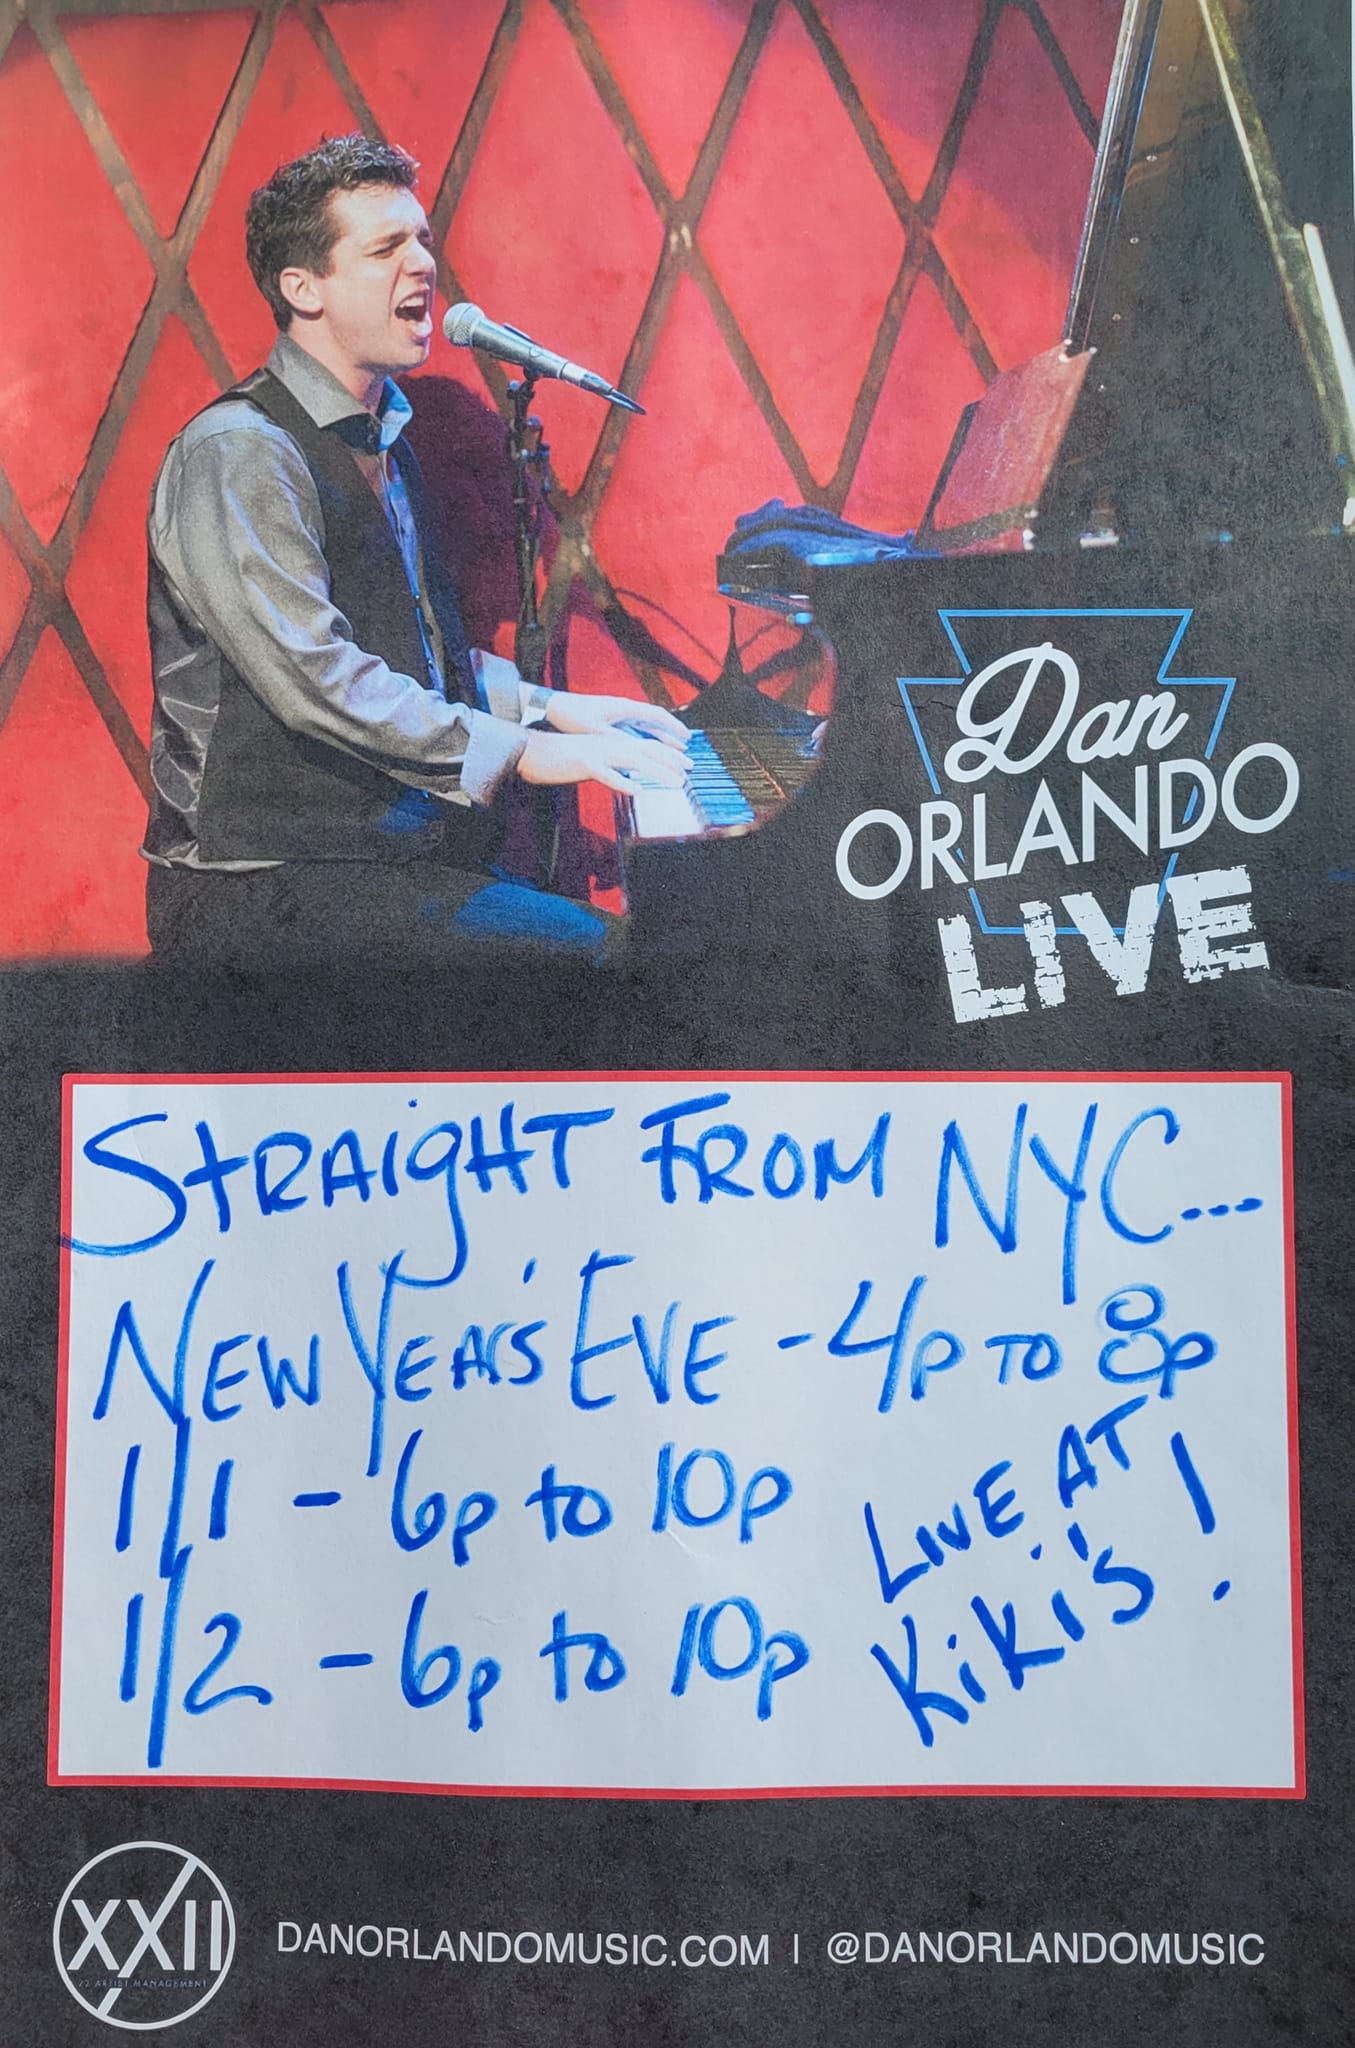 Dan
ORLANDO
LIVE
STRAIGHT FROM NYC...
NEW YEAR'S EVE - 4p TO 8p
1/1 - 6p to 10p
1/2 - 6p to 10p
LIVE AT
KiKi's!
XXII
22 ARTIST MANAGEMENT
DANORLANDOMUSIC.COM | @DANORLANDOMUSIC